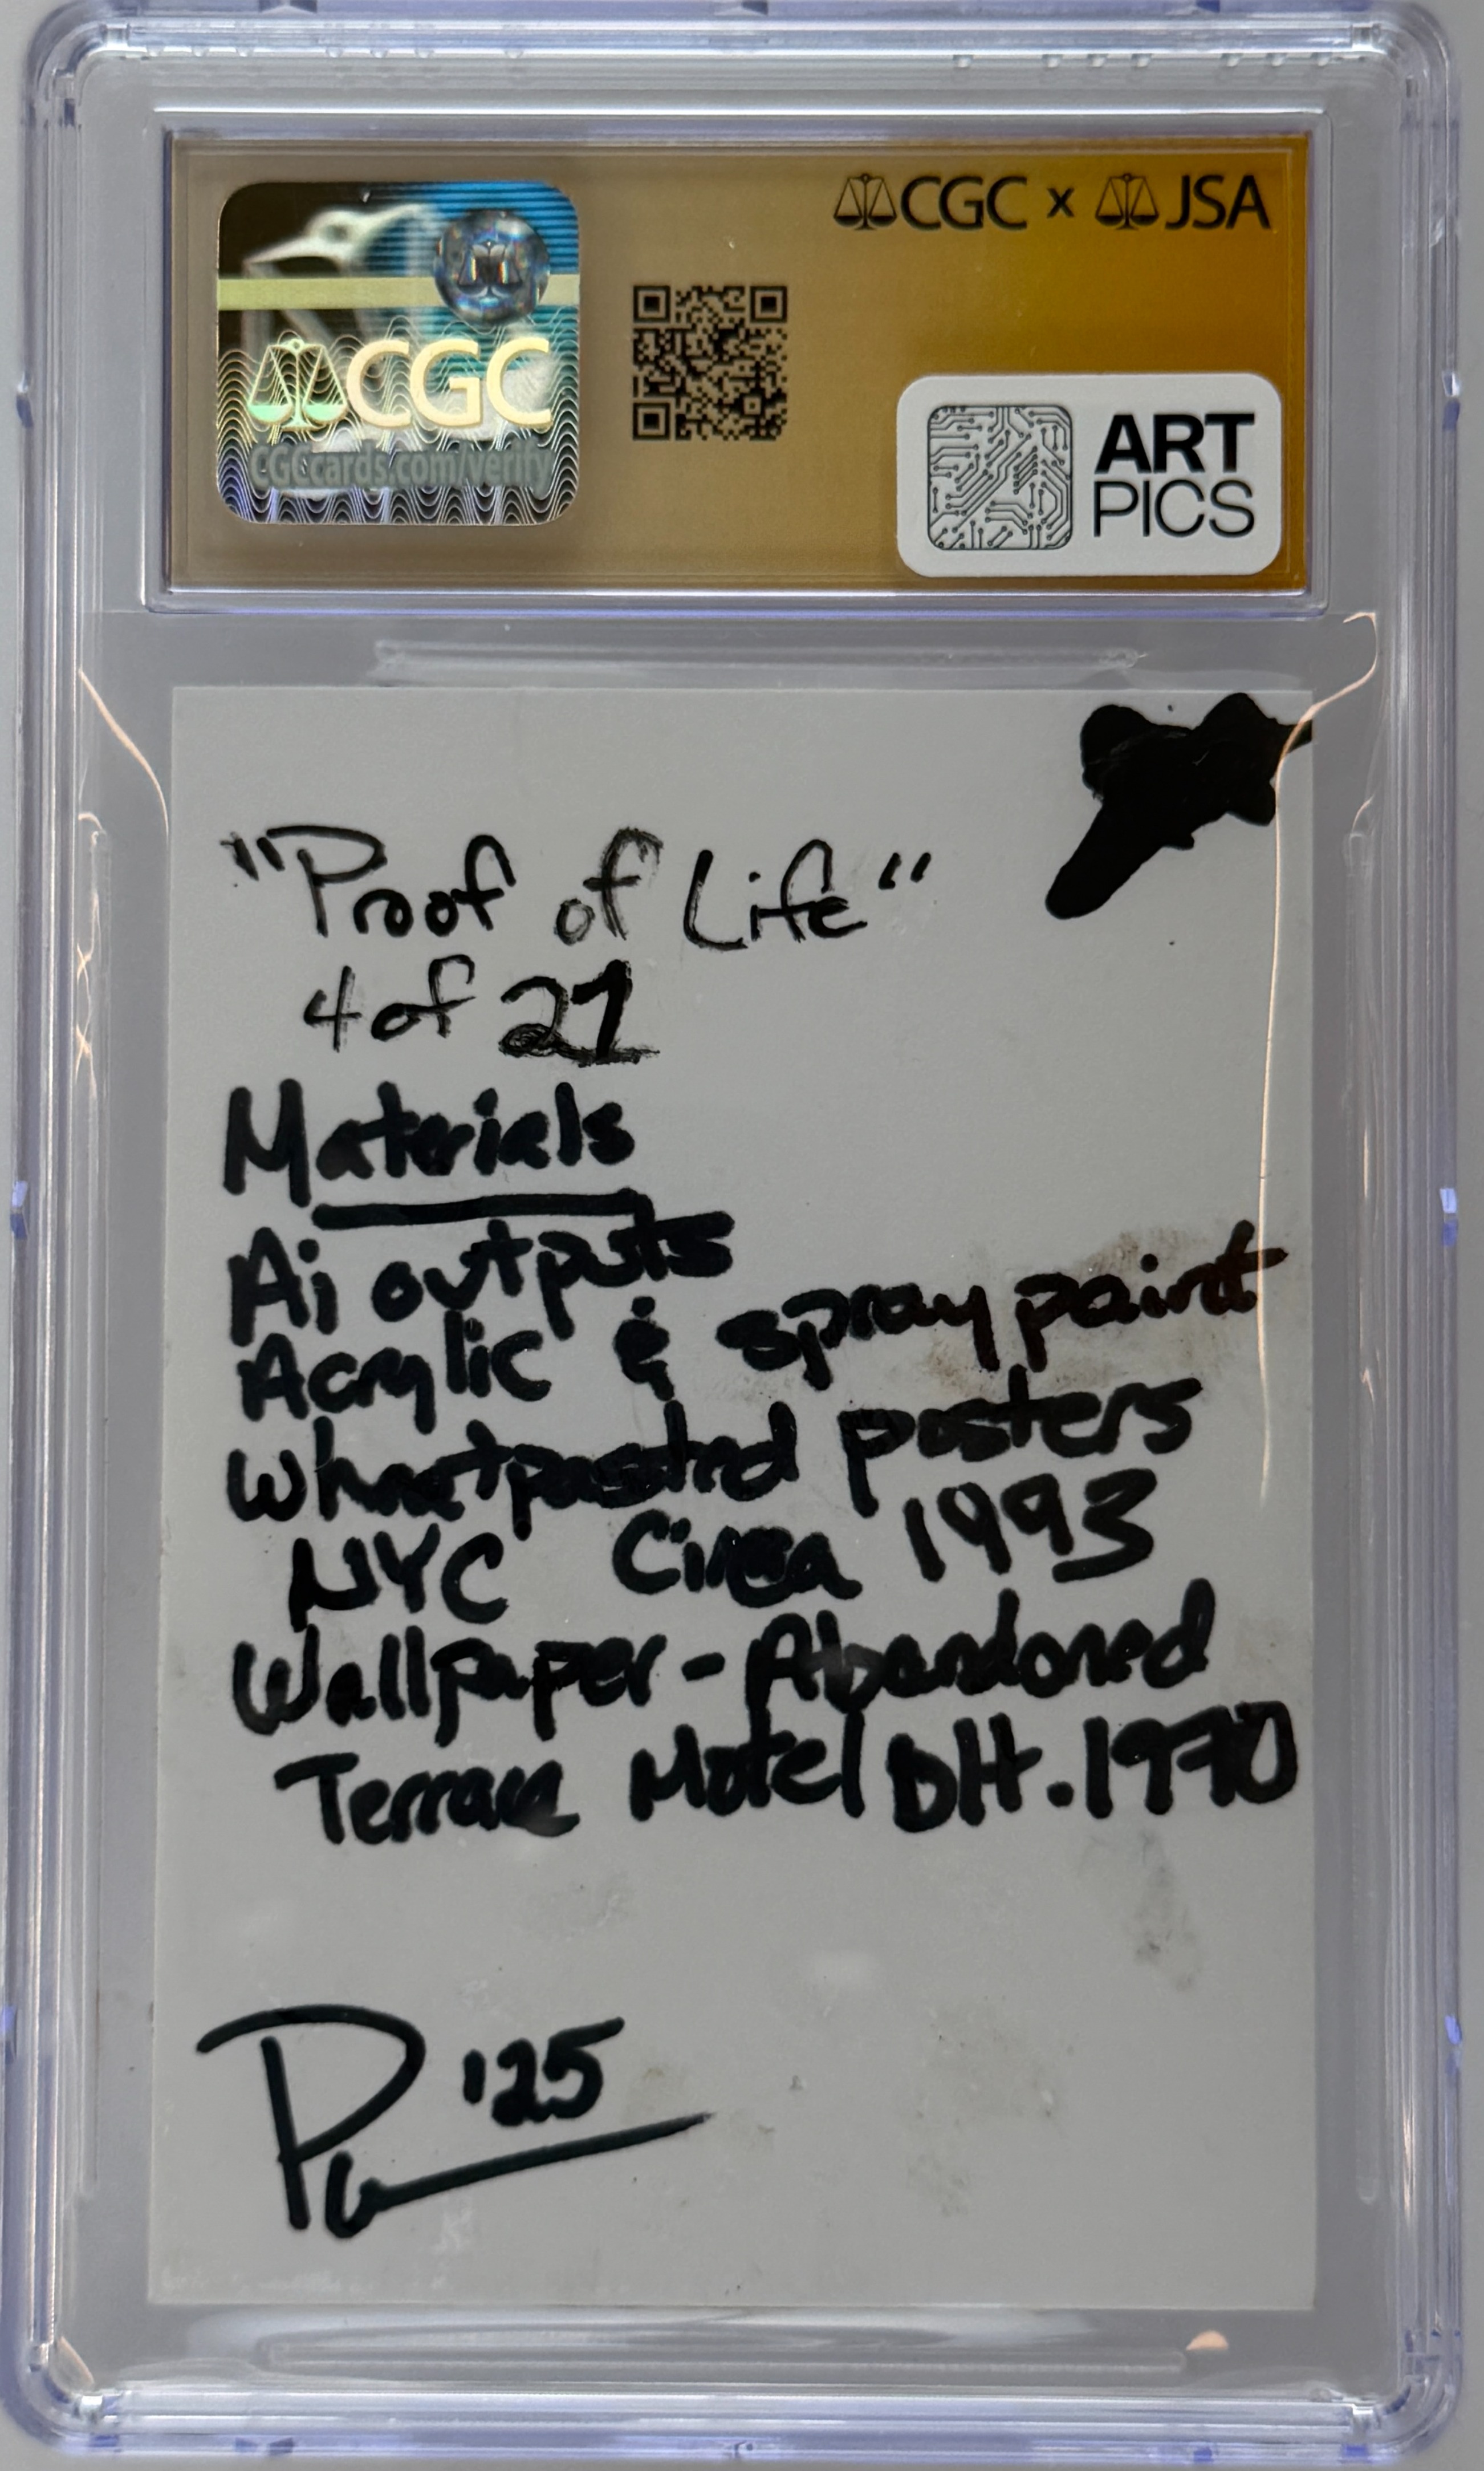 CGC x JSA
CGC
CGCcards.com/verify
ART
PICS
"Proof of Life"
4 of 21
Materials
Ai outputs
Acrylic & spray paint
Wheatpasted posters
NYC Circa 1993
Wallpaper - Abandoned
Terrace Motel DH. 1970
'25